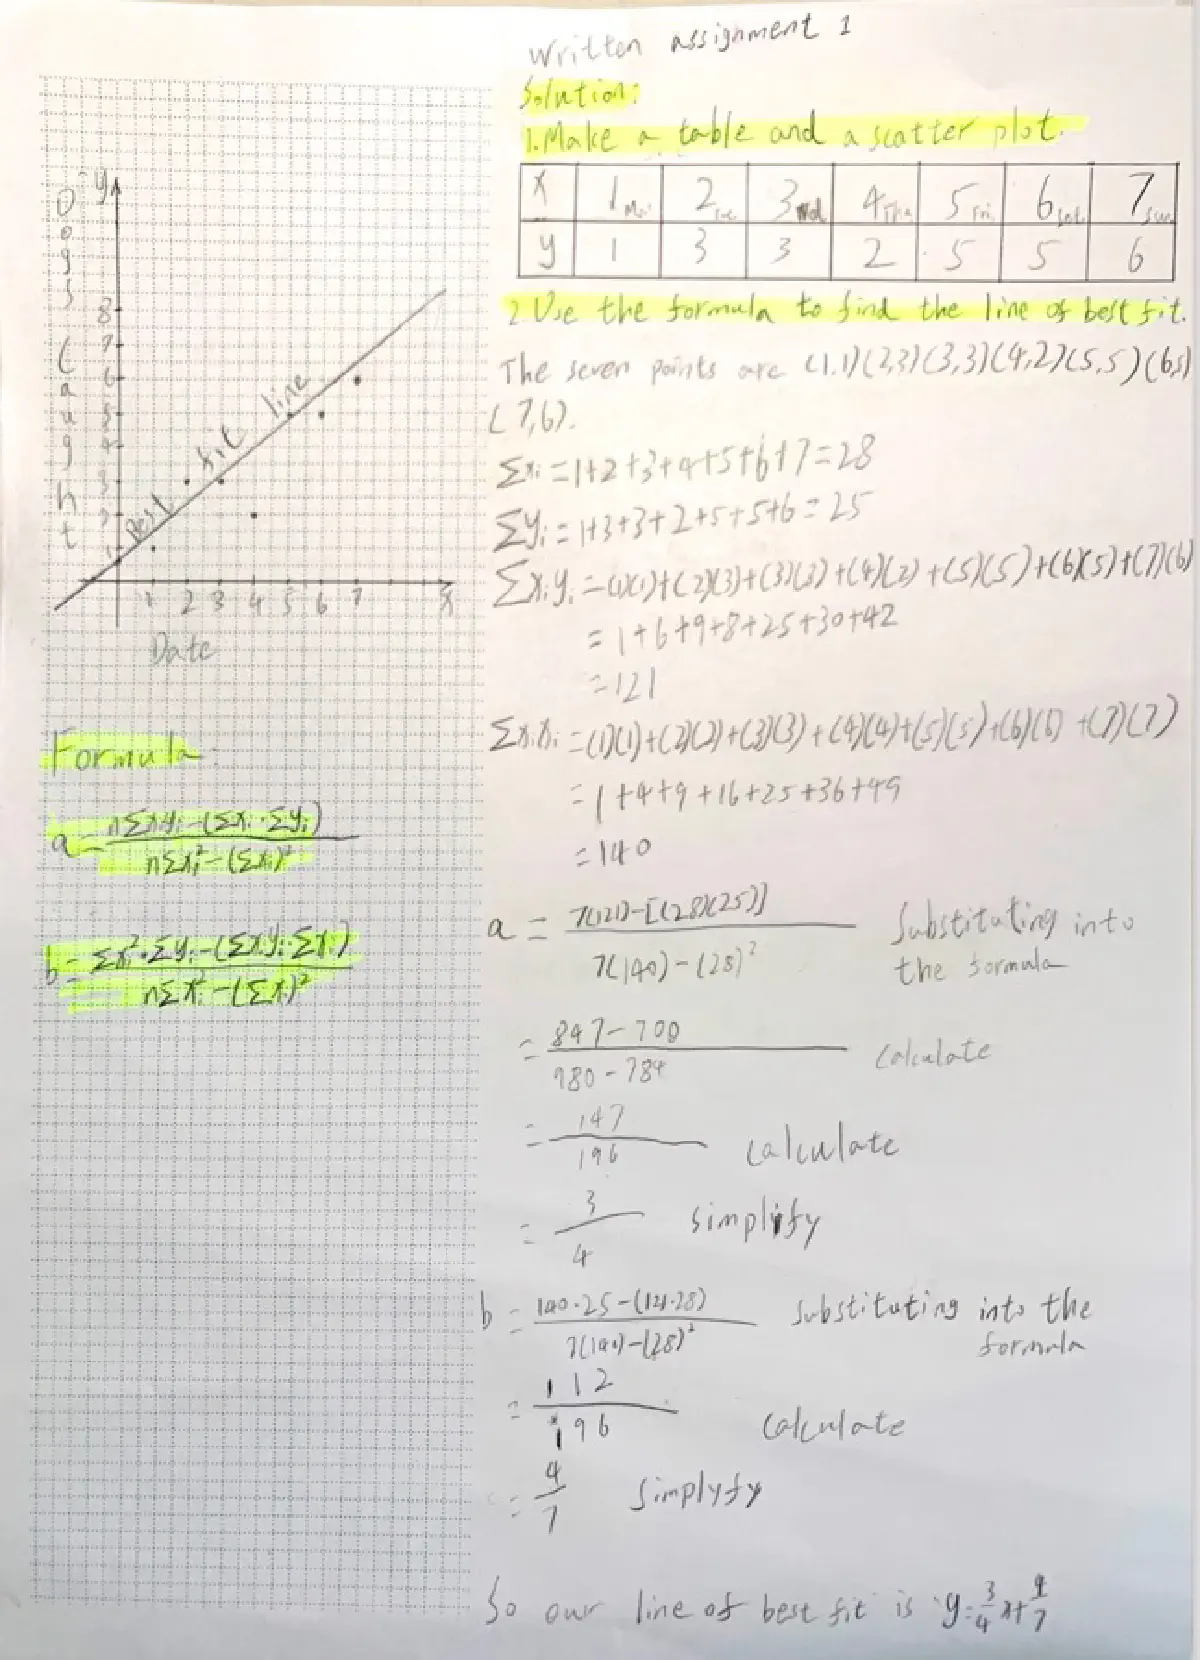 Written assignment 1
Solution:
1.Make a table and a scatter plot.
x 1 Mon 2 Tue. 3 Wed 4 Thu 5 Fri. 6 Sat. 7 Sun
y 1 3 3 2 5 5 6
2 Use the formula to find the line of best fit.
The seven points are (1,1)(2,3)(3,3)(4,2)(5,5)(6,5)
(7,6).
Σxi = 1+2+3+4+5+6+7=28
Σyi = 1+3+3+2+5+5+6=25
Σxiyi =(1)(1)+(2)(3)+(3)(3)+(4)(2)+(5)(5)+(6)(5)+(7)(6)
= 1+6+9+8+25+30+42
=121
Σxixi =(1)(1)+(2)(2)+(3)(3)+(4)(4)+(5)(5)+(6)(6)+(7)(7)
= 1+4+9+16+25+36+49
=140
a = 7(121)-[(28)(25)] / 7(140)-(28)² Substituting into
the formula
= 847-700 / 980-784 calculate
= 147 / 196 calculate
= 3 / 4 simplify
b = 140·25-(121·28) / 7(140)-(28)² substituting into the
formula
= 112 / 196 calculate
= 4 / 7 simplyfy
So our line of best fit is y=3/4x+4/7
y
Dogs Caught
8
7
6
5
4
3
2
1
best fit line
1 2 3 4 5 6 7 x
Date
Formula:
a = nΣxiyi-(Σxi·Σyi) / nΣxi²-(Σxi)²
b = Σxi²·Σyi-(Σxiyi·Σxi) / nΣxi²-(Σxi)²